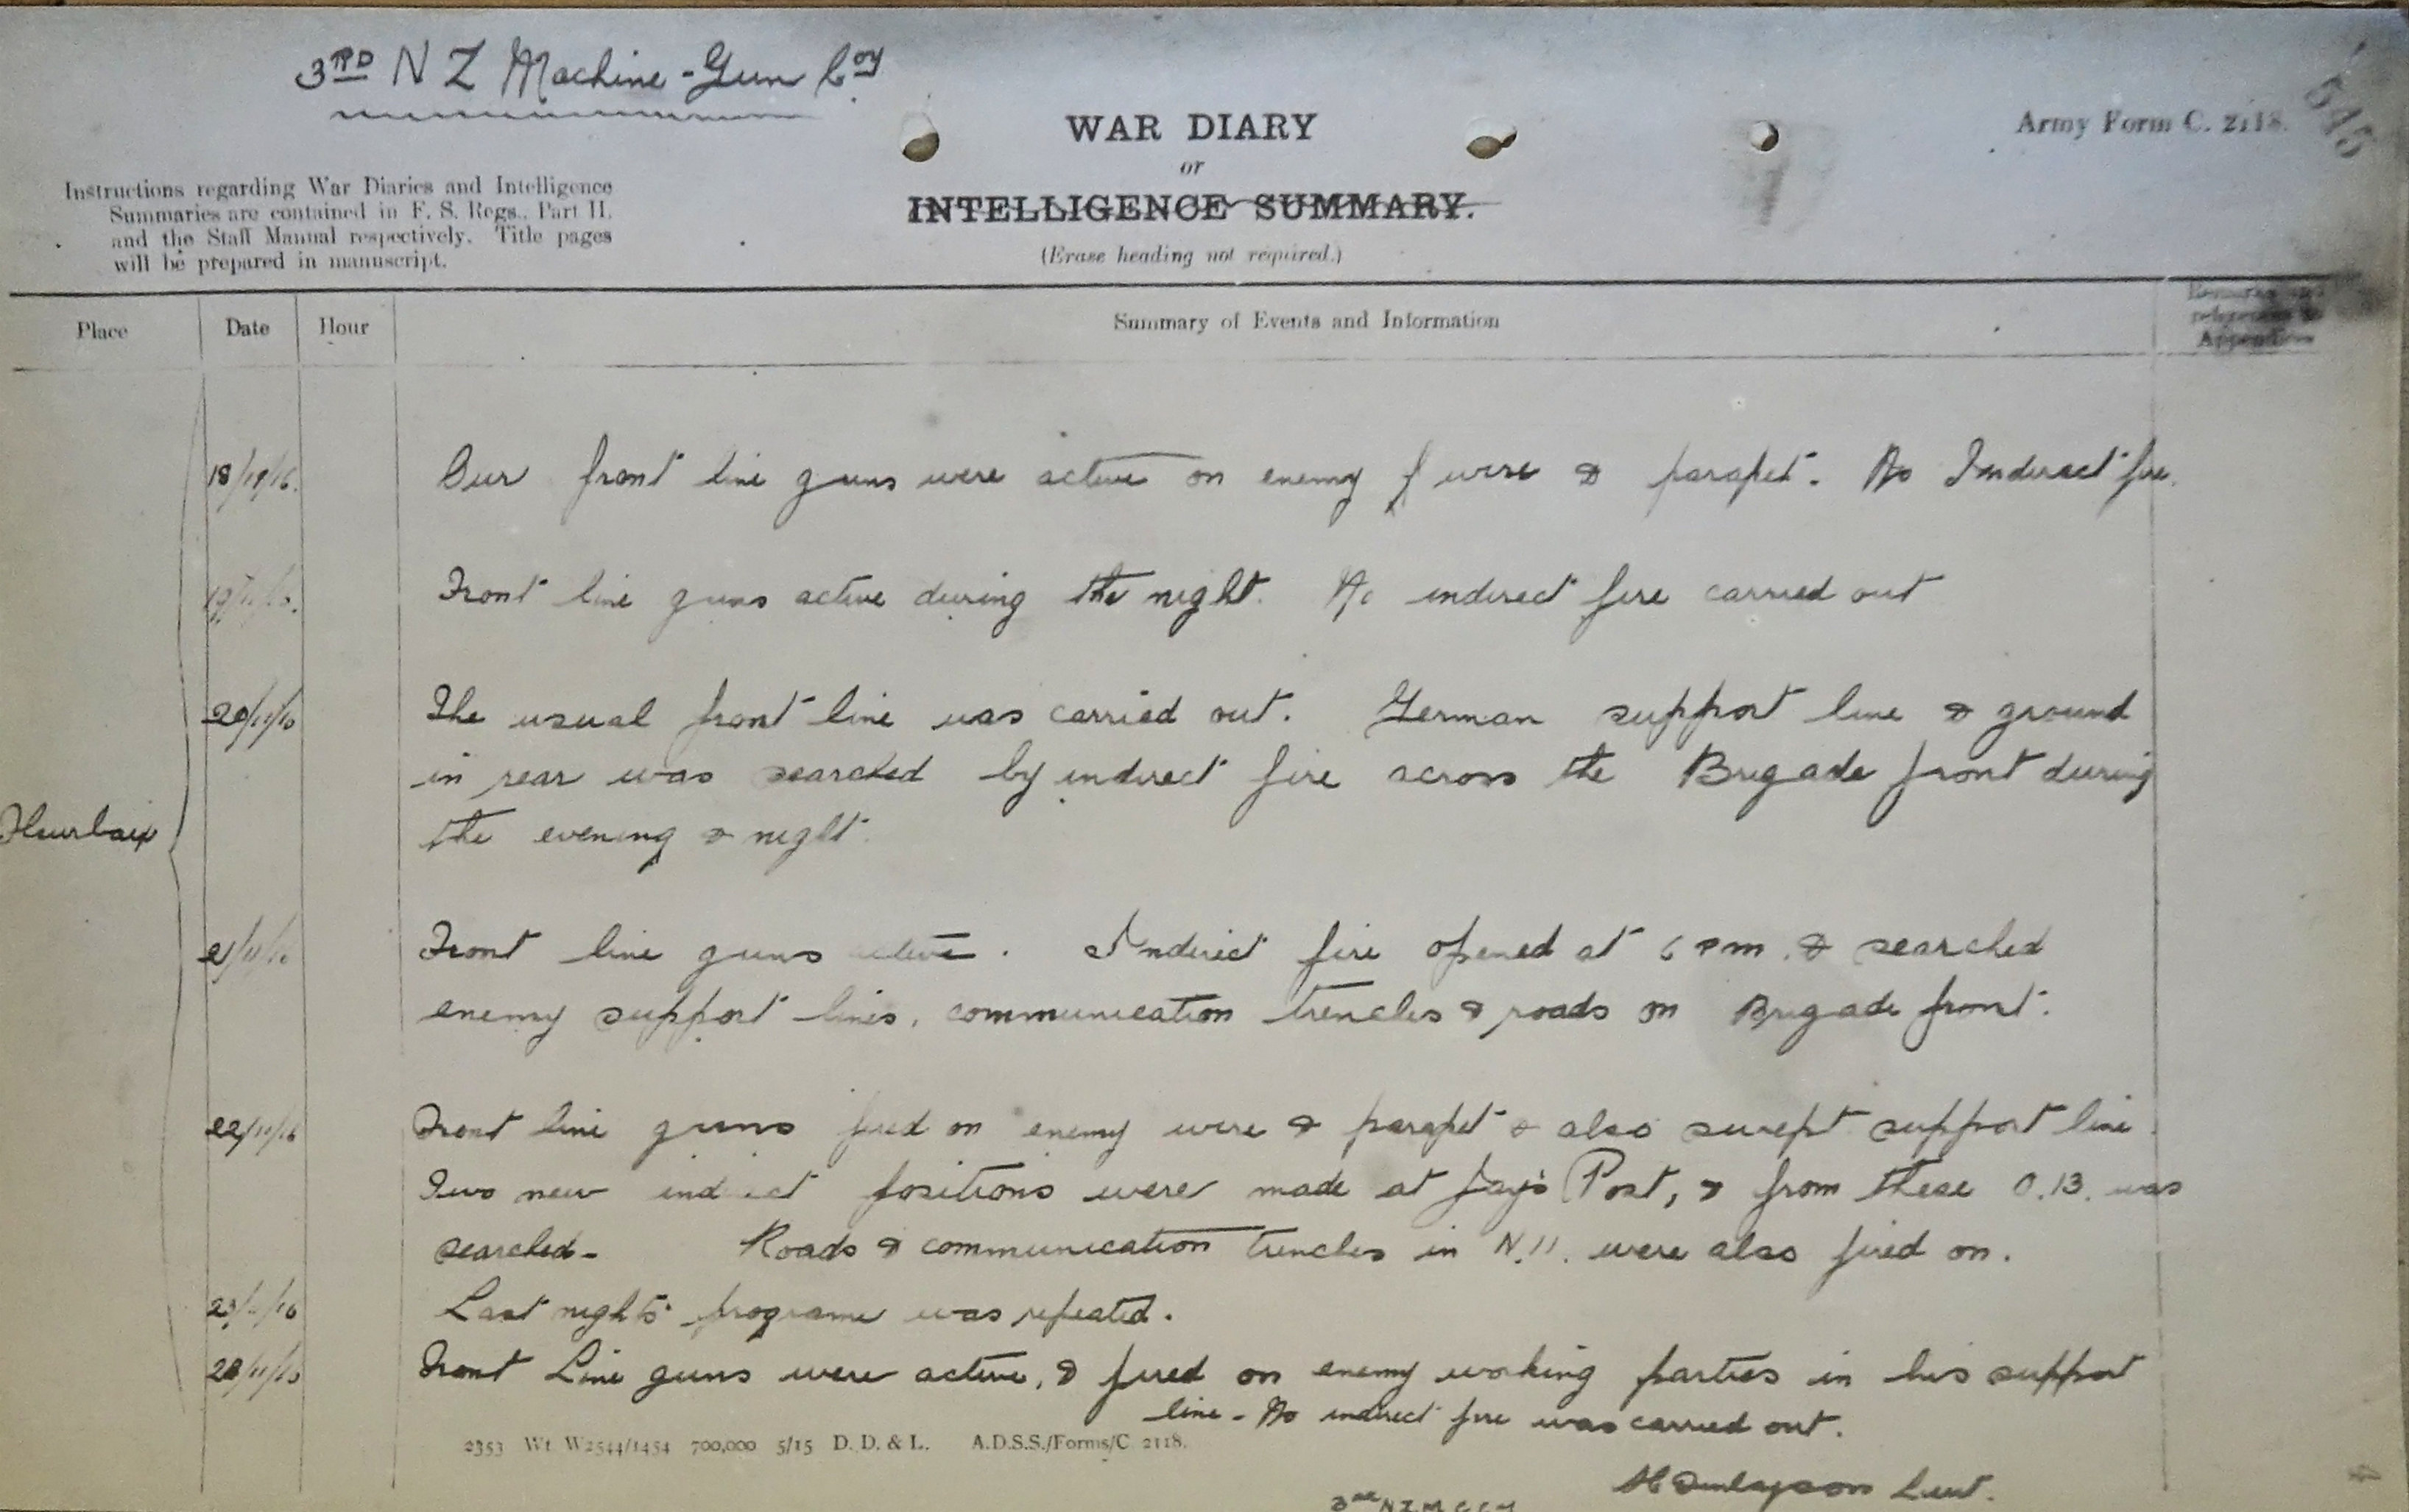 3RD N Z Machine-Gun Coy
WAR DIARY
or
INTELLIGENCE SUMMARY.
(Erase heading not required.)
Army Form C. 2118.
Instructions regarding War Diaries and Intelligence
Summaries are contained in F. S. Regs., Part II.
and the Staff Manual respectively. Title pages
will be prepared in manuscript.
Place Date Hour Summary of Events and Information
Remarks and
references to
Appendices
Fleurbaix
Our front line guns were active on enemy wire & parapet. No Indirect fire.
Front line guns active during the night. No indirect fire carried out
20/11/16 The usual front line was carried out. German support line & ground
in rear was searched by indirect fire across the Brigade front during
the evening & night.
21/11/16 Front line guns active. Indirect fire opened at 6 pm. & searched
enemy support lines, communication trenches & roads on Brigade front.
22/11/16 Front line guns fired on enemy wire & parapet & also swept support line.
Two new indirect positions were made at Jay's Post, & from these O.13. was
searched- Roads & communication trenches in N.11. were also fired on.
Last nights programe was repeated.
Front Line guns were active, & fired on enemy working parties in his support
line - No indirect fire was carried out.
2353 Wt. W2544/1454 700,000 5/15 D. D. & L. A.D.S.S./Forms/C. 2118.
Finlayson Lieut.